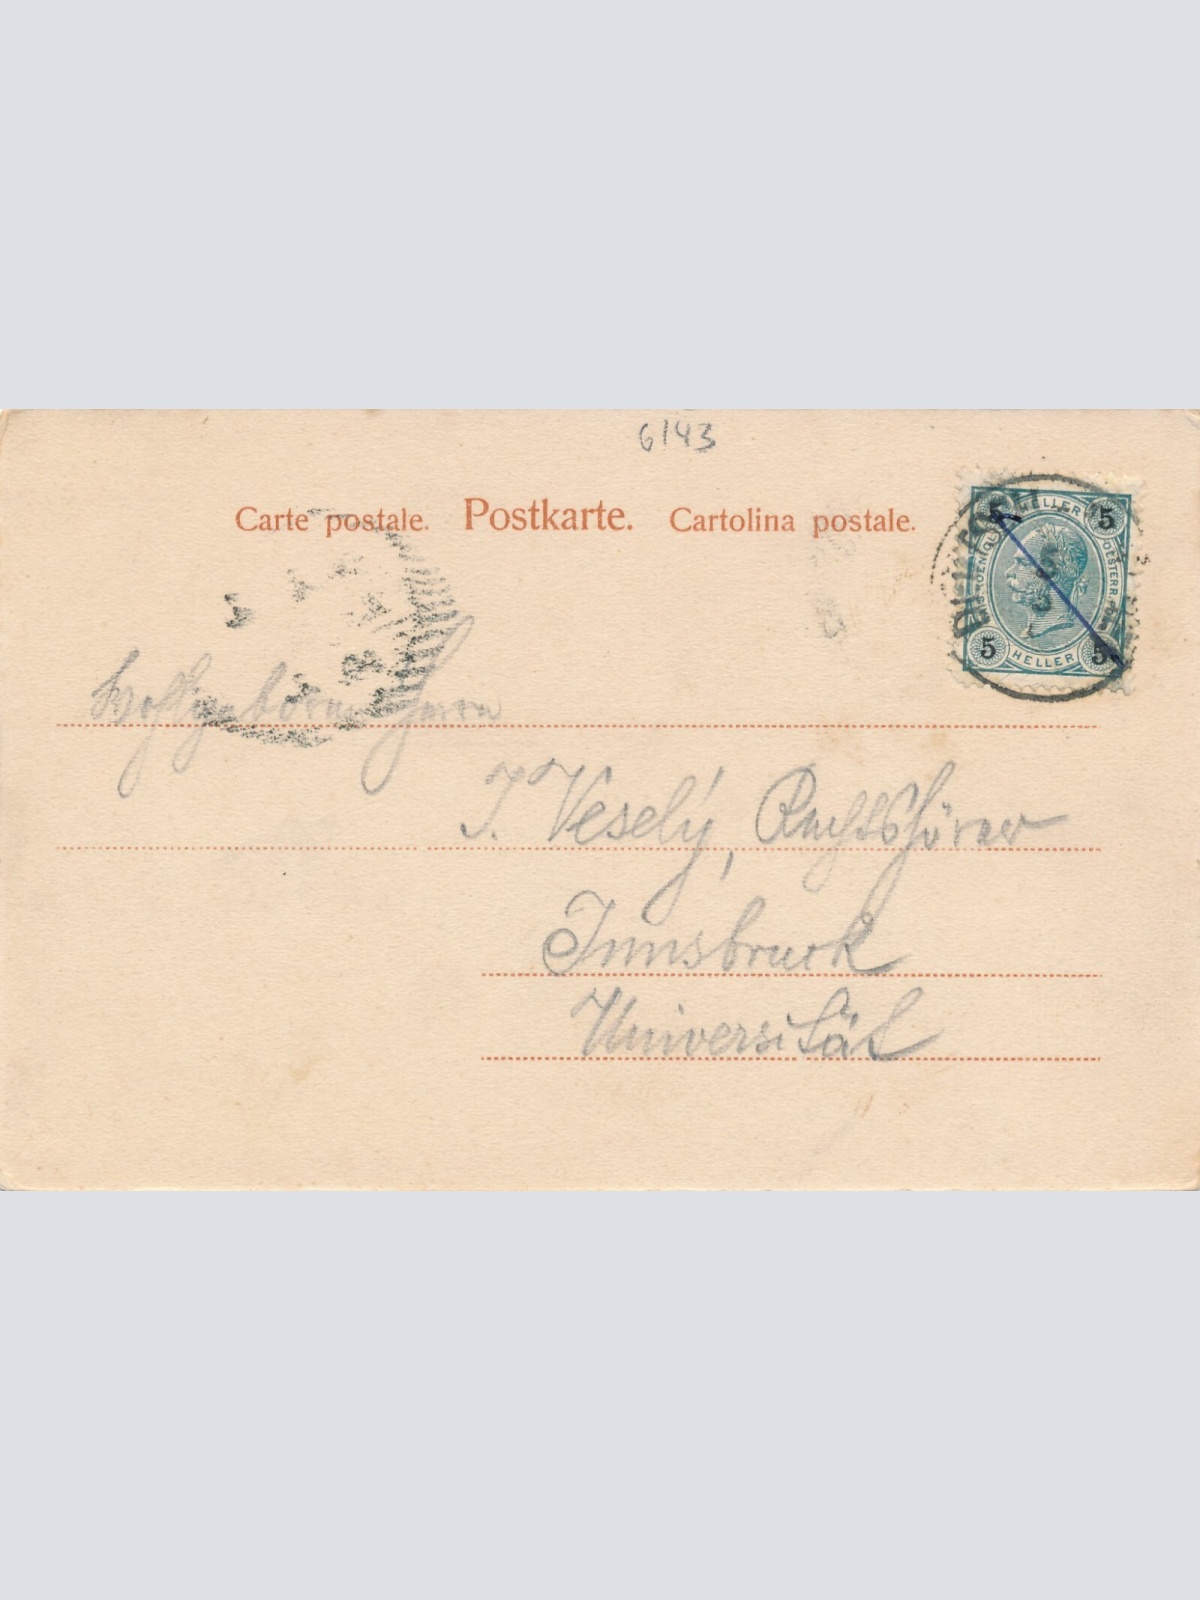 6143
Carte postale. Postkarte. Cartolina postale.
5 HELLER 5
5 HELLER 5
Wohlgeboren Herrn
J. Veselý, Rechtshörer
Innsbruck
Universität